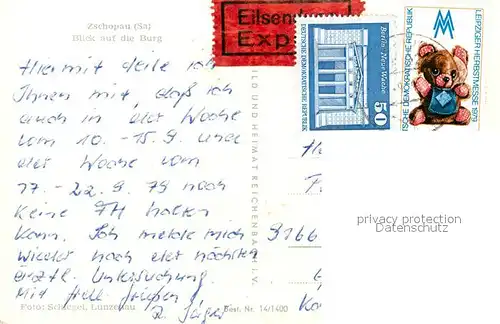 Zschopau (Sa)
Blick auf die Burg
Hiermit teile ich
Ihnen mit, daß ich
auch in der Woche
vom 10.-15.9. und
der Woche vom
17.-22.9.79 noch
keine FH halten
kann. Ich melde mich
wieder nach der nächsten
ärztl. Untersuchung.
Mit frdl. Grüßen
Foto: Schlegel, Lunzenau
Best. Nr. 14/1400
BILD UND HEIMAT REICHENBACH I. V.
Eilsen
Exp
Berlin: Neue Wache
DEUTSCHE DEMOKRATISCHE REPUBLIK
50
LEIPZIGER HERBSTMESSE 1979
TSCHE DEMOKRATISCHE REPUBLIK
MM
9366
privacy protection
Datenschutz